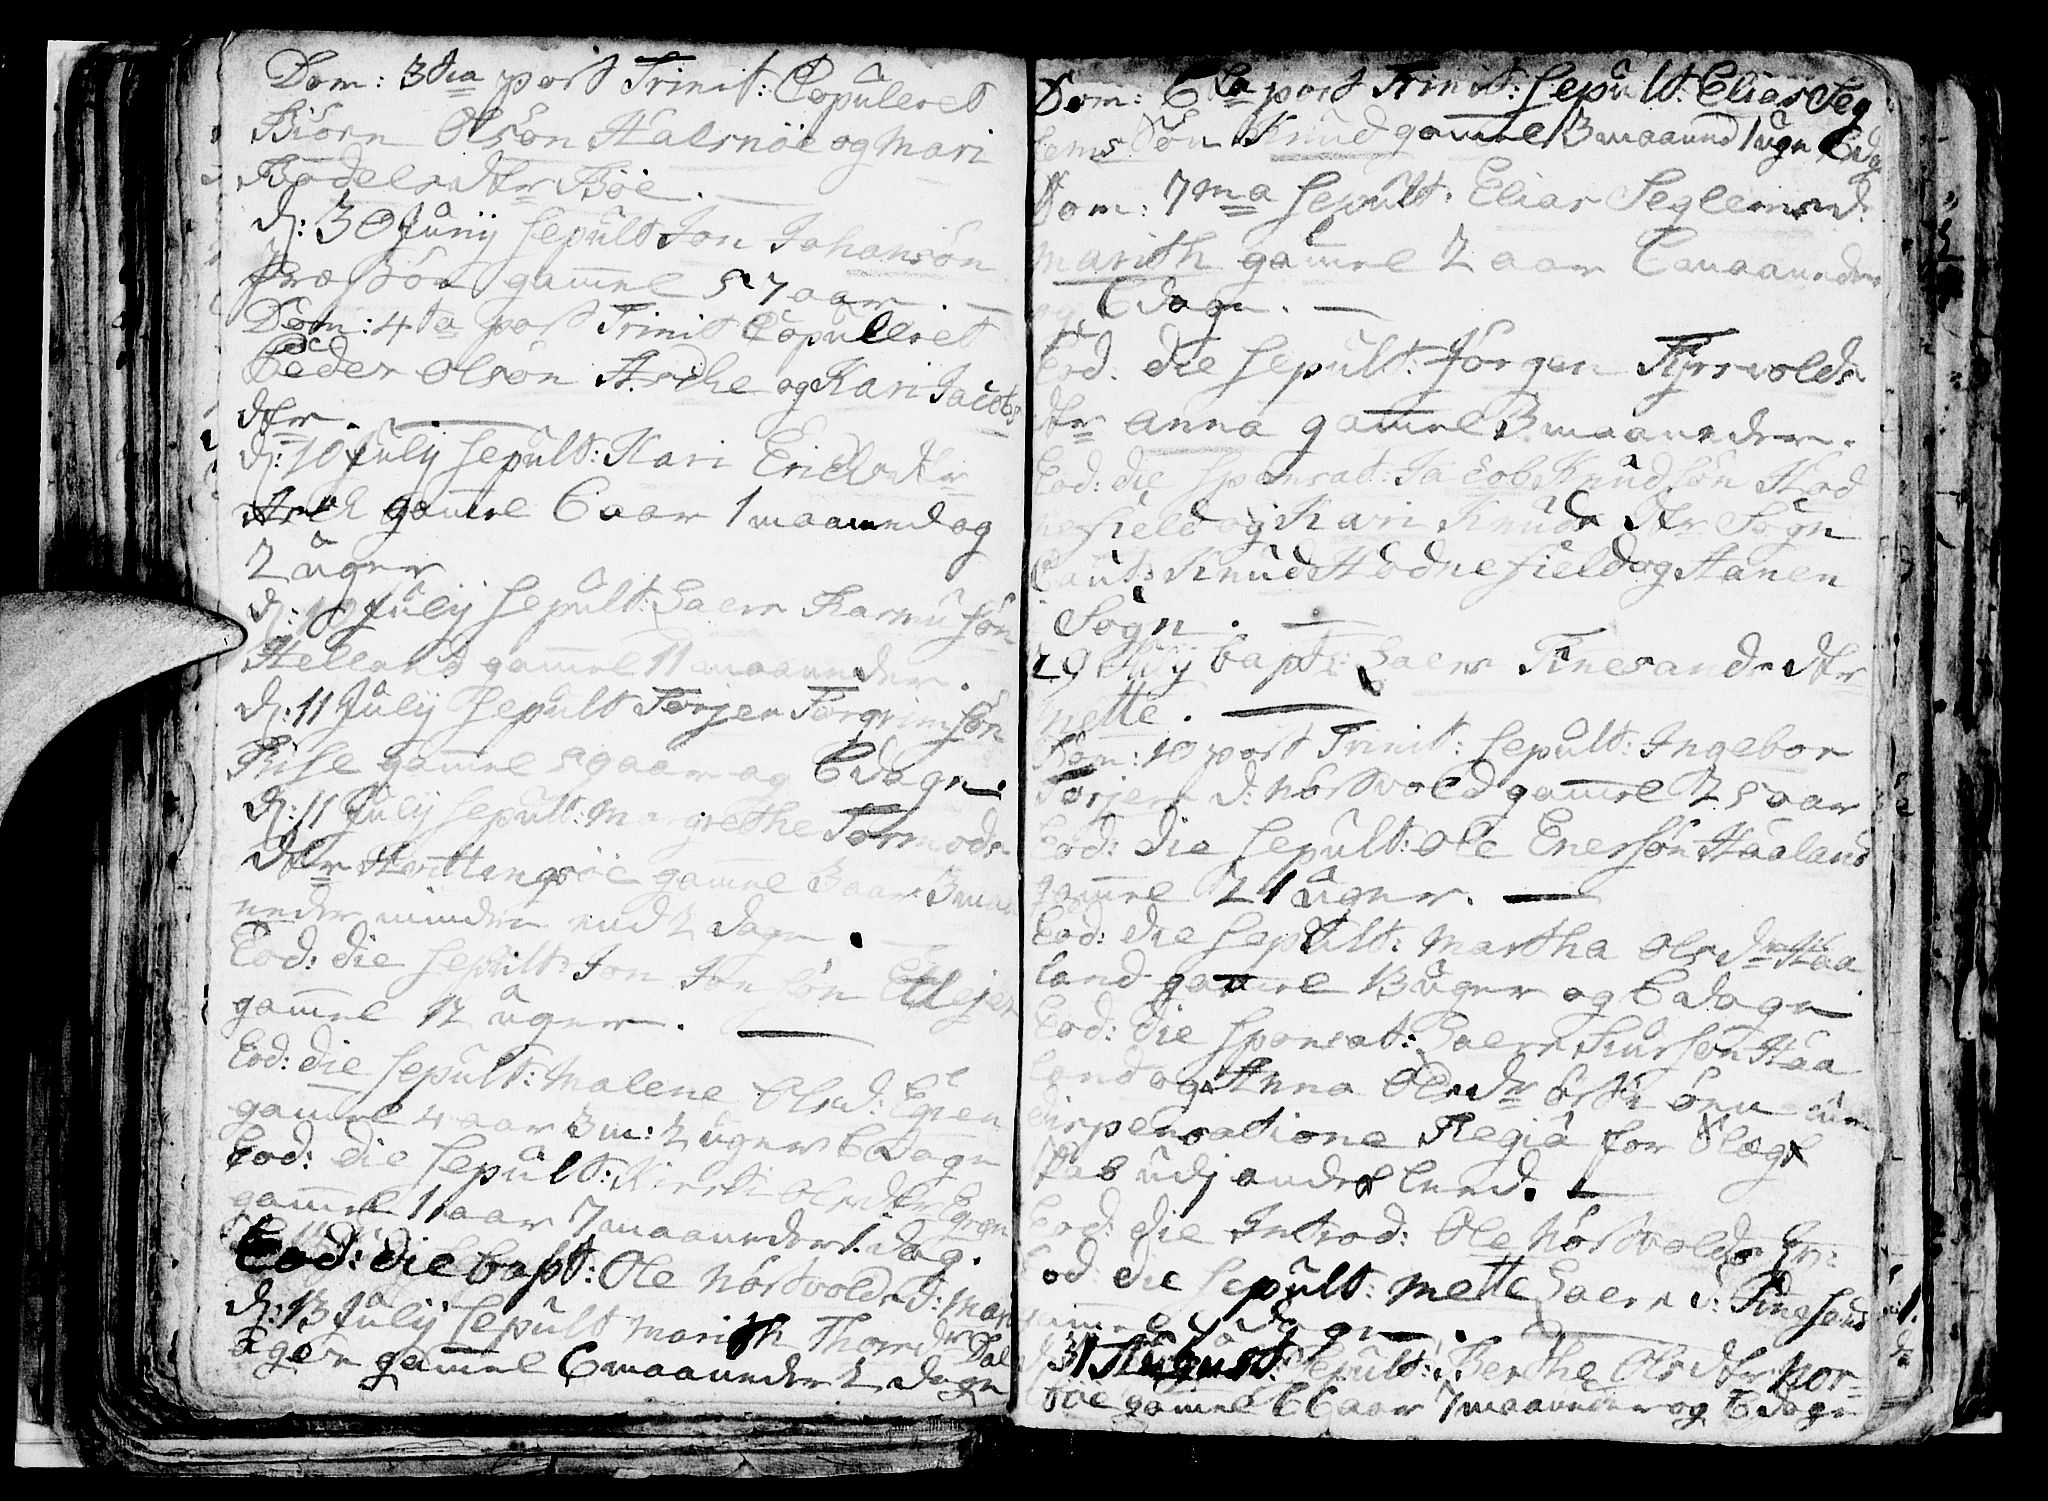 Dom: 3tia post Trinit: Copuleret
Biörn Olsön Halsnöe og Mari
Bodels dtr Böe. —
d: 30 Junij sepult Jon Johansön
gammel 57 aar. —
Dom: 4ta post Trinit Copulleret
Peder Olsön Aske og Kari Jacobs
dtr. —
d: 10 Julij sepult: Kari Erichs dtr
Ask gamel 6 aar 1 maaned og
2 uger
d: 10 Julij sepult: Laers Rasmusön
Helland gammel 11 maaneder.
d: 11 Julij sepult Torjer Torgrimsön
Riise gammel 59 aar og 6 dage.
d: 11 Julij sepult: Margrethe Tormods
dtr gamel 3 aar 3 maa
neder minder end 2 dage. —
Eod: die sepult: Jon Jonsön
gammel 12 uger. —
Eod: die sepult: Malene Olsd: Egren
gamel 4 aar 3 m: 2 uger 6 dage
Eod: die sepult: Kirsti Olsdtr Egren
gammel 1 aar 7 maaneder 1 dag.
Eod: die bapt: Ole Nörstvolds d: Mari
d: 13 Julij sepult Marith Thores dr Dal
ager gamel 6 maaneder 2 dage
Dom: 6ta post Trinit: sepult: Elias Seg
lems Sön Knud gamel 3 maaned 1 uge 6 dag
Dom: 7ma sepult: Elias Seglems d:
Marith gamel 2 aar 6 maaneder
og 6 dage. —
Eod. die sepult: Jörgen Kyrrvolds
dtr Anna gamel 3 maaneder.
Eod: die sponsat: Jacob Knudsön Hod
nefield og Kari Knuds dtr Sogn
Caut: Knud Hodnefield og Hanen
Sogn. —
29 Julij bapt: Laers Finesands dtr
Mette. —
Dom: 10 post Trinit: sepult: Ingebor
Torjers d: Norstvold gamel 25 aar
Eod: die sepult: Ole Enersön Haaland
gamel 21 uger. —
Eod: die sepult: Martha Olsdr Haa
land gamel 13 uger og 6 dage
Eod: die sponsat: Laers Siursön Haa
land og Anna Olsdr cum
dispensatione Regiâ for Slægt
skab udj andet leed. —
Eod: die Introd: Ole Nörstvolds
Eod: die sepult: Mette Laers d: Finesand
gammel dage.
31 August: sepult: Berthe Olsdtr Nor-
böe gamel 66 aar 7 maaneder og 6 dage